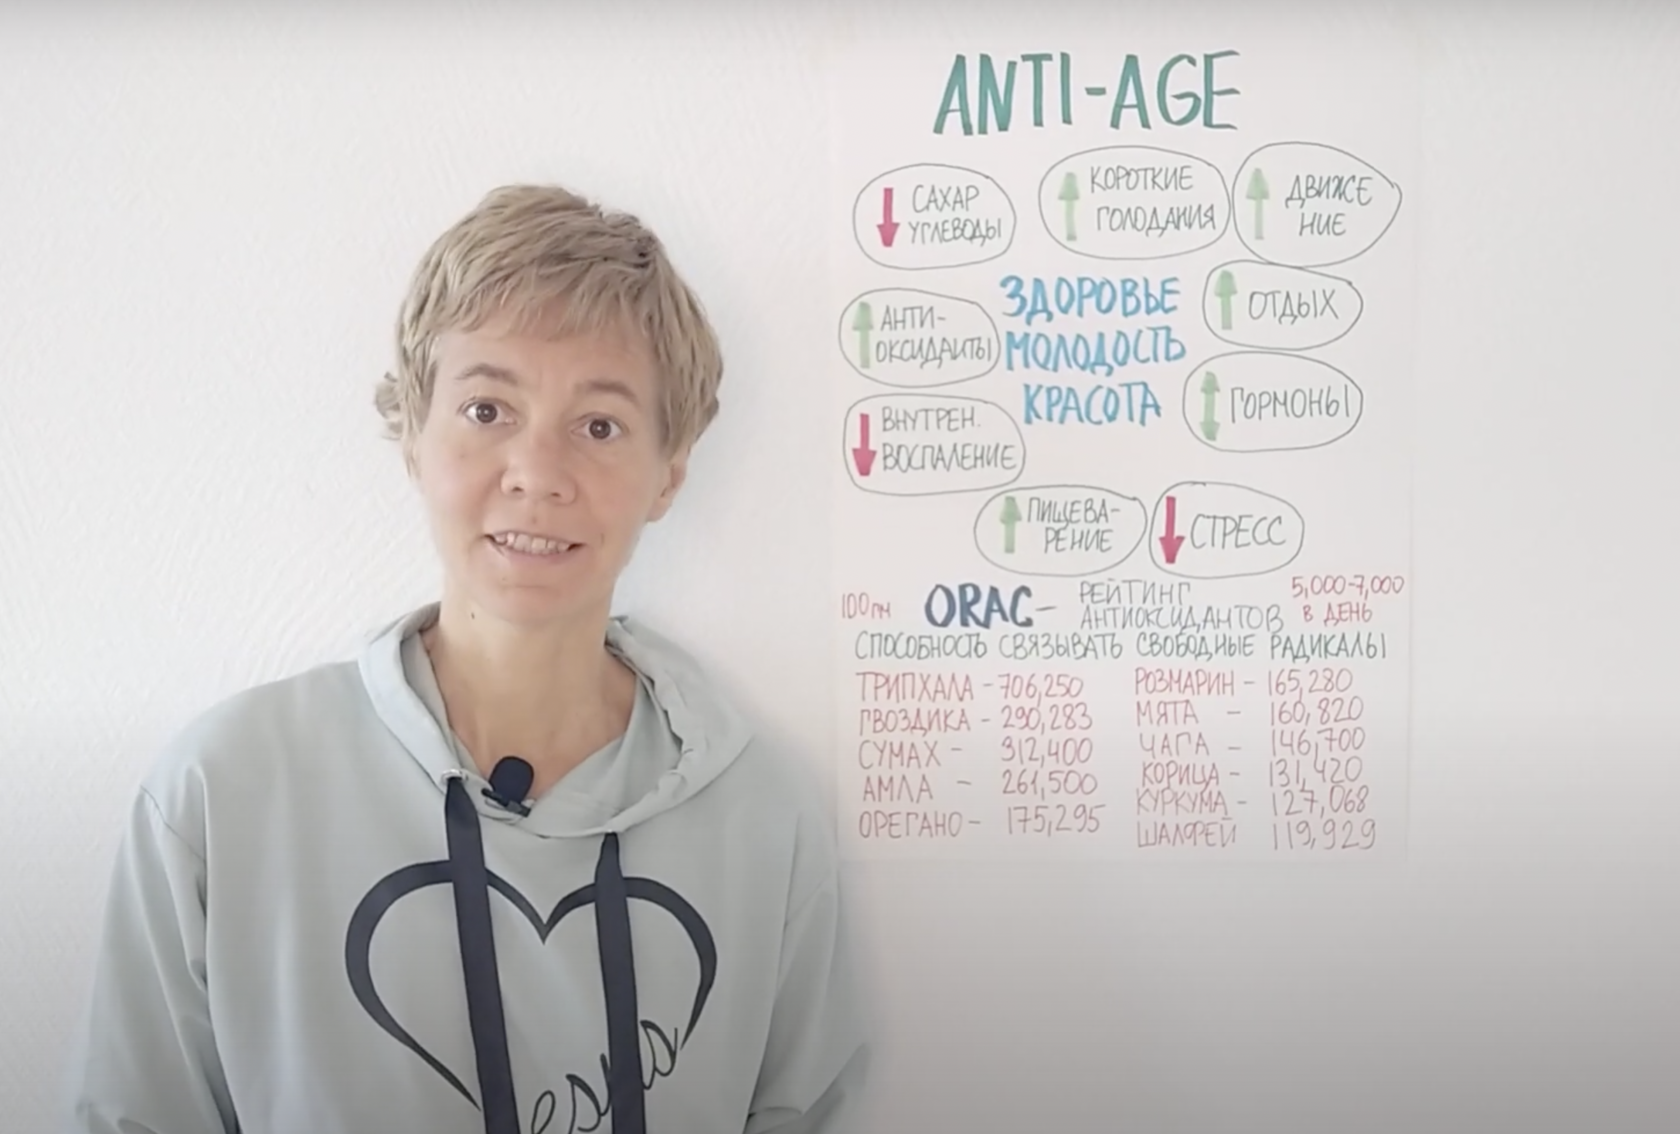 ANTI-AGE
САХАР
УГЛЕВОДЫ
КОРОТКИЕ
ГОЛОДАНИЯ
ДВИЖЕ
НИЕ
АНТИ-
ОКСИДАНТЫ
ЗДОРОВЬЕ
МОЛОДОСТЬ
КРАСОТА
ОТДЫХ
ГОРМОНЫ
ВНУТРЕН.
ВОСПАЛЕНИЕ
ПИЩЕВА-
РЕНИЕ
СТРЕСС
100гм ORAC - РЕЙТИНГ
АНТИОКСИДАНТОВ
5,000-7,000
В ДЕНЬ
СПОСОБНОСТЬ СВЯЗЫВАТЬ СВОБОДНЫЕ РАДИКАЛЫ
ТРИПХАЛА - 706,250
ГВОЗДИКА - 290,283
СУМАХ - 312,400
АМЛА - 261,500
ОРЕГАНО - 175,295
РОЗМАРИН - 165,280
МЯТА - 160,820
ЧАГА - 146,700
КОРИЦА - 131,420
КУРКУМА - 127,068
ШАЛФЕЙ 119,929